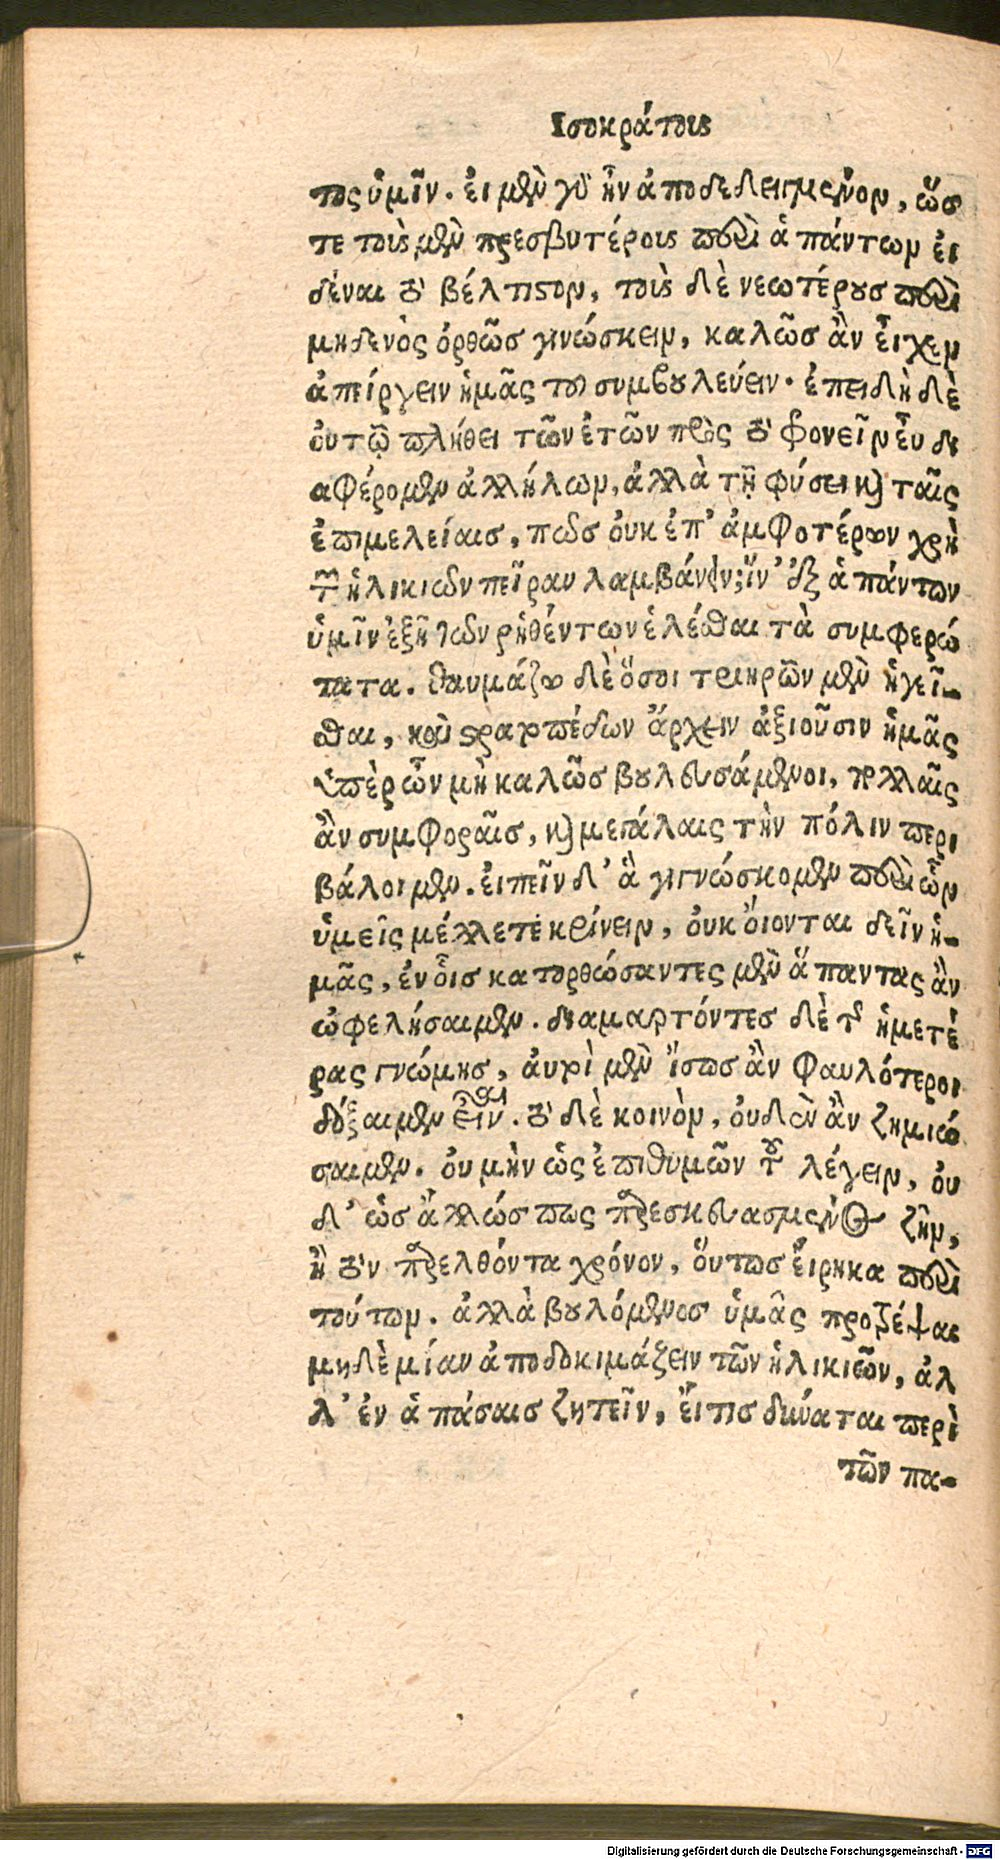 Ισοκράτους
τος ὑμῖν. ἐι μὲν γὰρ ἦν ἀποδεδειγμένον, ὥσ
τε τοὺς μὲν πρεσβυτέρους περὶ ἁπάντων ἐι
δέναι τὸ βέλτιστον, τοὺς δὲ νεωτέρους περὶ
μηδενὸς ὀρθῶς γινώσκειν, καλῶς ἂν ἔιχεν
ἀπείργειν ἡμᾶς τοῦ συμβουλεύειν. ἐπειδὴ δὲ
ὀυ τῷ πλήθει τῶν ἐτῶν πρὸς τὸ φρονεῖν ἒυ δι
αφέρομεν ἀλλήλων, ἀλλὰ τῇ φύσει καὶ ταῖς
ἐπιμελείαις, πῶς ὀυκ ἐπ' ἀμφοτέρων χρὴ
τῶν ἡλικιῶν πεῖραν λαμβάνειν; ἵν' ἐξ ἁπάντων
ὑμῖν ἐξῇ τῶν ῥηθέντων ἑλέσθαι τὰ συμφερώ
τατα. θαυμάζω δὲ ὅσοι τριηρῶν μὲν ἡγεῖ-
σθαι, καὶ στρατοπέδων ἄρχειν ἀξιοῦσιν ἡμᾶς
ὑπὲρ ὧν μὴ καλῶς βουλευσάμενοι, πολλαῖς
ἂν συμφοραῖς, καὶ μεγάλαις τὴν πόλιν περι
βάλοιμεν. ἐιπεῖν δ' ἃ γιγνώσκομεν περὶ ὧν
ὑμεῖς μέλλετε κρίνειν, ὀυκ ὄιονται δεῖν ἡ-
μᾶς, ἐν ὅις κατορθώσαντες μὲν ἅπαντας ἂν
ὠφελήσαιμεν. διαμαρτόντες δὲ τῆς ἡμετέ
ρας γνώμης, ἀυτοὶ μὲν ἴσως ἂν φαυλότεροι
δόξαιμεν εἶναι. τὸ δὲ κοινὸν, ὀυδὲν ἂν ζημιώ
σαιμεν. ὀυ μὴν ὡς ἐπιθυμῶν τοῦ λέγειν, ὀυ
δ' ὡς ἄλλως πως παρεσκευασμένος ζῆν,
ἢ τὸν παρελθόντα χρόνον, ὅυτως ἔιρηκα περὶ
τούτων. ἀλλὰ βουλόμενος ὑμᾶς προτρέψαι
μηδὲ μίαν ἀποδοκιμάζειν τῶν ἡλικιῶν, ἀλ
λ' ἐν ἁπάσαις ζητεῖν, ἔι τις δύναται περὶ
τῶν πα-
Digitalisierung gefördert durch die Deutsche Forschungsgemeinschaft - DFG